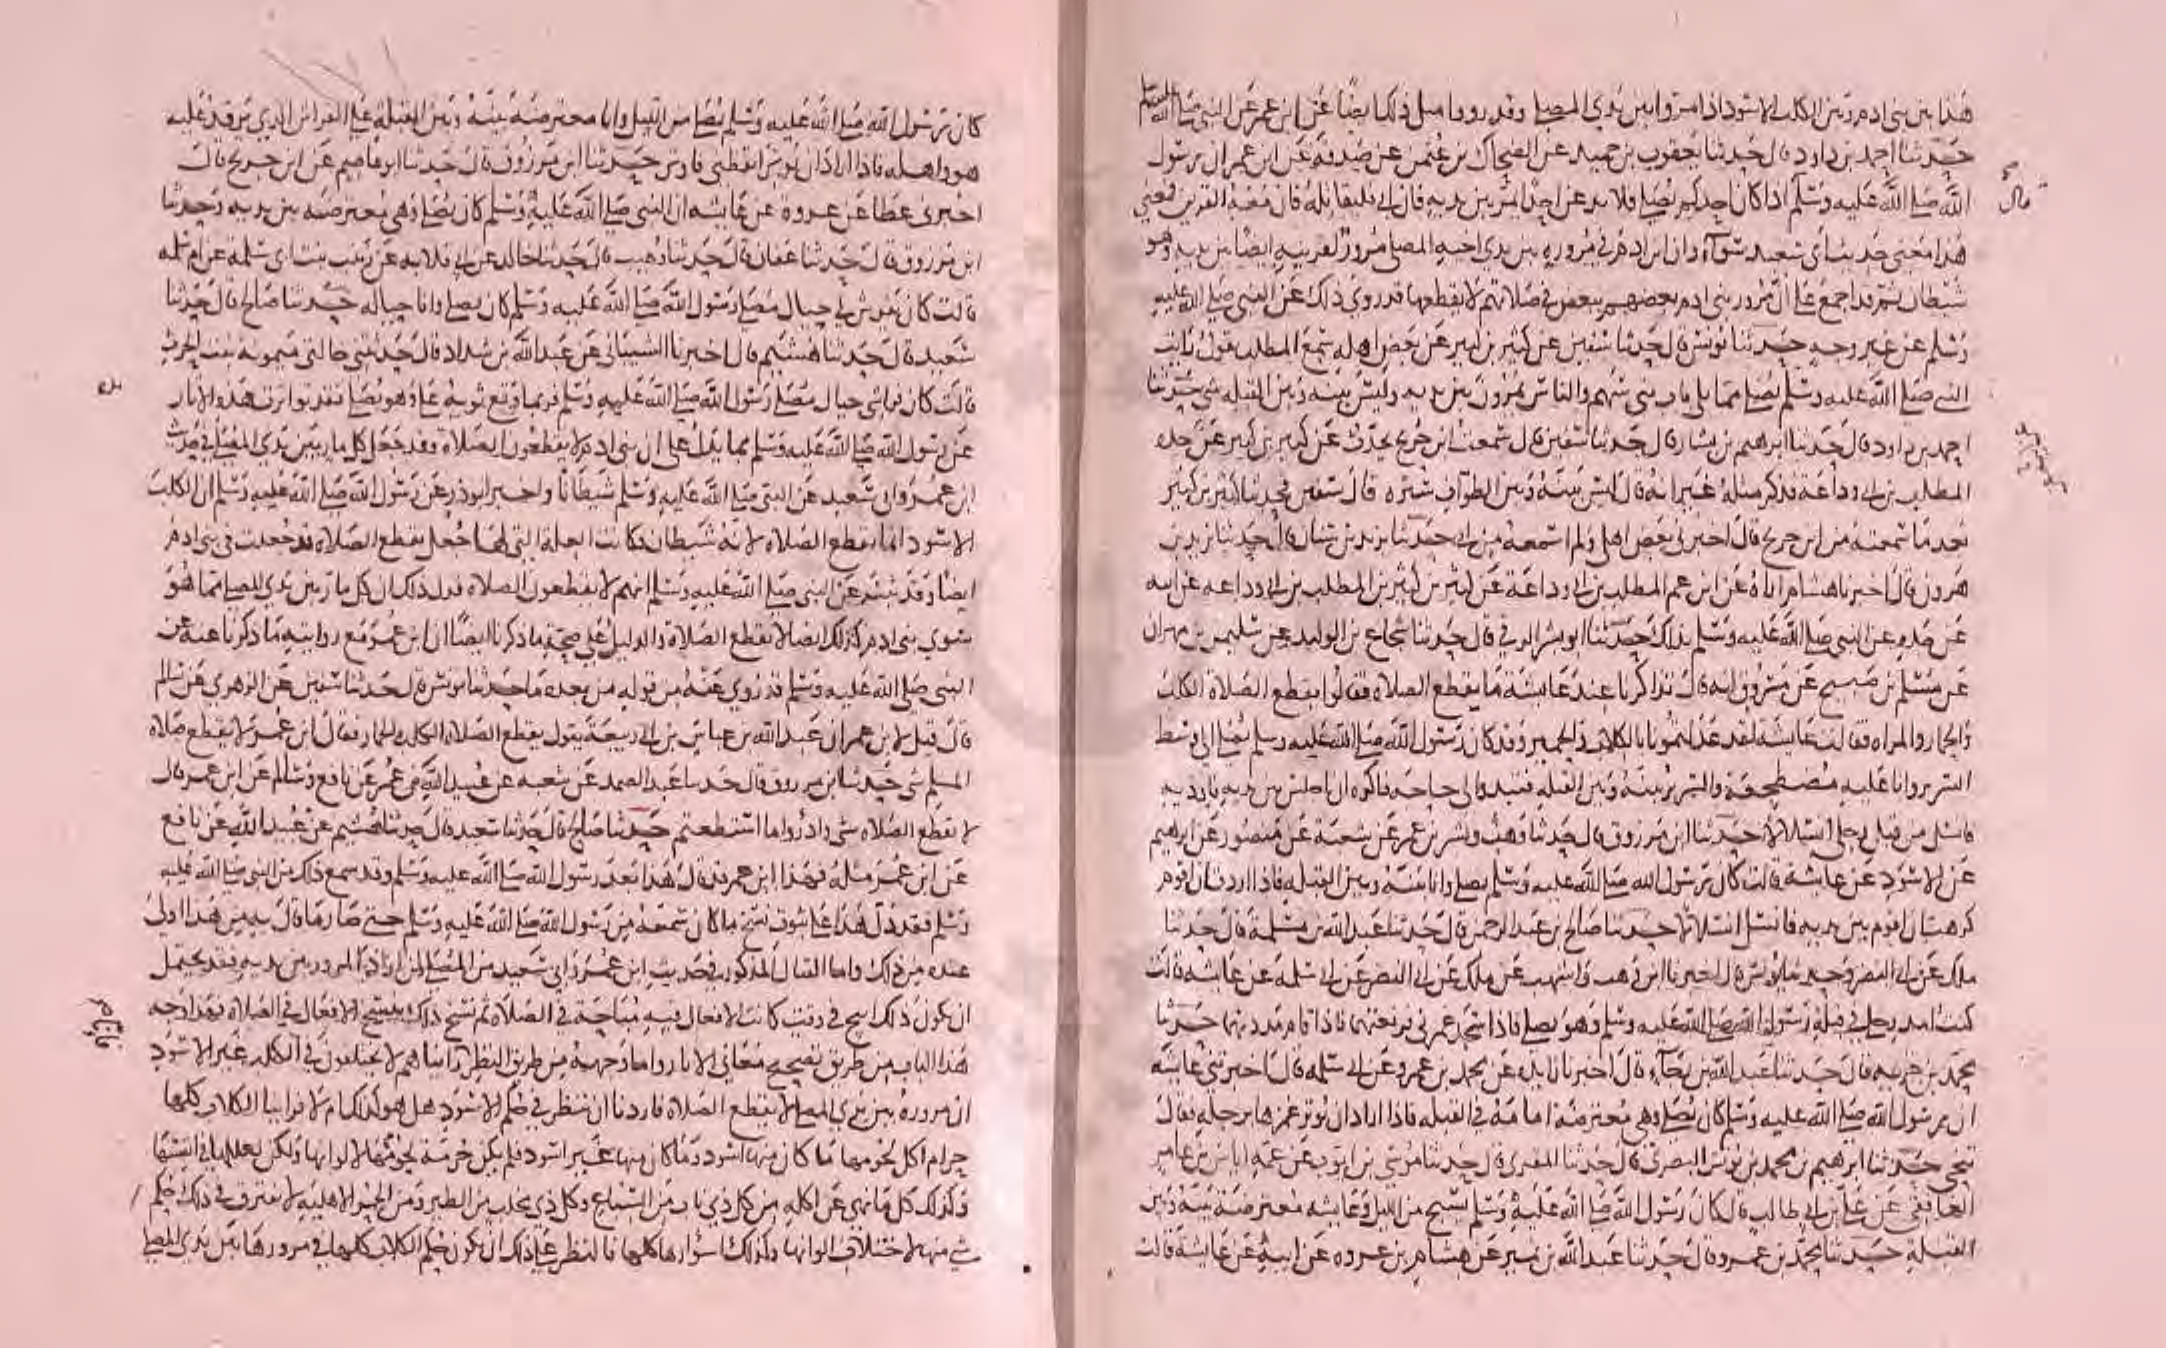 هذا بين بني ادم وبين الكلب الاسود اذا مروا بين يدي المصلي وقد روي مثل ذلك ايضا عن ابن عمر عن النبي صلى الله
حدثنا احمد بن داود قال حدثنا يعقوب بن حميد عن الضحاك بن عثمن عن صدقه عن ابن عمر ان رسول
الله صلى الله عليه وسلم اذا كان احدكم يصلي فلا يدعن احدا يمر بين يديه فان ابى فليقاتله فان معه القرين فمعنى
هذا معنى حديث ابي سعيد سوآء وان ابن ادم في مروره بين يدي اخيه المصلي مرور لقرينه ايضا بين يديه وهو
شيطان ثم قد اجمع على ان مرور بني ادم بعضهم ببعض في صلاتهم لا يقطعها قد روي ذلك عن النبي صلى الله عليه
وسلم عن غير وجه حدثنا يونس قال حدثنا سفين عن كثير بن كثير عن بعض اهله سمع المطلب يقول رايت
النبي صلى الله عليه وسلم يصلي مما يلي باب بني سهم والناس يمرون بين يديه وليس بينه وبين القبله شي حدثنا
احمد بن داود قال حدثنا ابرهيم بن بشار قال حدثنا سفين قال سمعت ابن جريج يحدث عن كثير بن كثير عن جده
المطلب بن ابي وداعة فذكر مثله غير انه قال ليس بينه وبين الطواف ستره قال سفين فحدثنا كثير بن كثير
بعد ما سمعته من ابن جريج قال اخبرني بعض اهلي ولم اسمعه من ابي حدثنا يزيد بن سنان قال حدثنا يزيد بن
هرون قال اخبرنا هشام اراه عن ابن عم المطلب بن ابي وداعة عن كثير بن كثير بن المطلب بن ابي وداعه عن ابيه
عن جده عن النبي صلى الله عليه وسلم بذلك حدثنا ابو بشر الرقي قال حدثنا شجاع بن الوليد عن سليمن بن مهران
عن مسلم بن صبيح عن مسروق انه قال تذاكرنا عند عايشة ما يقطع الصلاه فقالوا يقطع الصلاة الكلب
والحمار والمراه فقالت عايشة لقد عدلتمونا بالكلاب والحمير وقد كان رسول الله صلى الله عليه وسلم يصلي الى وسط
السرير وانا عليه مضطجعة والسرير بينه وبين القبله فتبدو لي حاجه فاكره ان اجلس بين يديه فاوذيه
فانسل من قبل رجلي انسلالا حدثنا ابن مرزوق قال حدثنا وهب وبشر بن عمر عن شعبة عن منصور عن ابرهيم
عن الاسود عن عايشة قالت كان رسول الله صلى الله عليه وسلم يصلي وانا بينه وبين القبله فاذا اردت ان اقوم
كرهت ان اقوم بين يديه فانسل انسلالا حدثنا صالح بن عبد الرحمن قال حدثنا عبد الله بن مسلمة قال حدثنا
ملك عن ابي النضر وحدثنا يونس قال اخبرنا ابن وهب واشهب عن ملك عن ابي النضر عن ابي سلمه عن عايشه قالت
كنت امد رجلي في قبلة رسول الله صلى الله عليه وسلم وهو يصلي فاذا سجد غمزني فرفعتهما فاذا قام مددتهما حدثنا
محمد بن خزيمه قال حدثنا عبد الله بن رجآء قال اخبرنا زايده عن محمد بن عمرو عن ابي سلمه قال اخبرتني عايشه
ان رسول الله صلى الله عليه وسلم كان يصلي وهي معترضة امامه في القبله فاذا اراد ان يوتر غمزها برجله فقال
تنحي حدثنا ابرهيم بن محمد بن يونس البصري قال حدثنا المقري قال حدثنا موسى بن ايوب عن عمه اياس بن عامر
الغافقي عن علي بن ابي طالب قال كان رسول الله صلى الله عليه وسلم يسبح من الليل وعايشه معترضة بينه وبين
القبلة حدثنا محمد بن عمرو قال حدثنا عبد الله بن نمير عن هشام بن عروه عن ابيه عن عايشة قالت
قال
كان رسول الله صلى الله عليه وسلم يصلي من الليل وانا معترضة بينه وبين القبلة على الفراش الذي يرقد عليه
هو واهله فاذا اراد ان يوتر ايقظني فاوتر حدثنا ابن مرزوق قال حدثنا ابو عاصم عن ابن جريج قال
اخبرني عطا عن عروة عن عايشه ان النبي صلى الله عليه وسلم كان يصلي وهي معترضه بين يديه وحدثنا
ابن مرزوق قال حدثنا عفان قال حدثنا وهيب قال حدثنا خالد عن ابي قلابه عن زينب بنت ابي سلمه عن ام سلمه
قالت كان يفرش لي حيال مصلى رسول الله صلى الله عليه وسلم كان يصلي وانا حياله حدثنا صالح قال حدثنا
سعيد قال حدثنا هشيم قال اخبرنا الشيباني عن عبد الله بن شداد قال حدثتني خالتي ميمونه بنت الحرث
قالت كان فراشي حيال مصلى رسول الله صلى الله عليه وسلم فربما وقع ثوبه علي وهو يصلي فقد تواترت هذه الاثار
عن رسول الله صلى الله عليه وسلم بما يدل على ان بني ادم لا يقطعون الصلاة وقد جعل كل مار بين يدي المصلي في حديث
ابن عمر وابي سعيد عن النبي صلى الله عليه وسلم شيطانا واخبر ابو ذر عن رسول الله صلى الله عليه وسلم ان الكلب
الاسود انما يقطع الصلاه لانه شيطان فكانت العلة التي لها جعل يقطع الصلاه قد جعلت في بني ادم
ايضا وقد ثبت عن النبي صلى الله عليه وسلم انهم لا يقطعون الصلاه فدل ذلك ان كل مار بين يدي المصلي مما هو
سوى بني ادم كذلك ايضا لا يقطع الصلاة والدليل على صحة ما ذكرنا ايضا ان ابن عمر مع روايته ما ذكرنا عنه عن
النبي صلى الله عليه وسلم قد روي عنه من قوله من بعده ما حدثنا يونس قال حدثنا سفين عن الزهري عن سالم
قال قيل لابن عمر ان عبد الله بن عياش بن ابي ربيعة يقول يقطع الصلاة الكلب والحمار فقال ابن عمر لا يقطع صلاة
المسلم شي حدثنا ابن مرزوق قال حدثنا عبد الصمد عن شعبه عن عبيد الله بن عمر عن نافع وسالم عن ابن عمر قال
لا يقطع الصلاه شي وادرؤا ما استطعتم حدثنا صالح قال حدثنا سعيد قال حدثنا هشيم عن عبيد الله عن نافع
عن ابن عمر مثله فهذا ابن عمر قد قال هذا بعد رسول الله صلى الله عليه وسلم وقد سمع ذلك من النبي صلى الله عليه
وسلم فقد دل هذا على ثبوت نسخ ما كان سمعه من رسول الله صلى الله عليه وسلم حتى صار ما قال به من هذا اولى
عنده من ذلك واما القتال المذكور في حديث ابن عمر وابي سعيد من المصلي لمن اراد المرور بين يديه فقد يحتمل
ان يكون ذلك ابيح في وقت كانت الافعال فيه مباحة في الصلاة ثم نسخ ذلك بنسخ الافعال في الصلاه فهذا وجه
هذا الباب من طريق تصحيح معاني الاثار واما وجهه من طريق النظر فانا رايناهم لا يختلفون في الكلب غير الاسود
ان مروره بين يدي المصلي لا يقطع الصلاة فاردنا ان ننظر في حكم الاسود هل هو كذلك ام لا فراينا الكلاب كلها
حرام اكل لحومها ما كان منها اسود وما كان منها غير اسود فلم يكن حرمة لحومها لالوانها ولكن لعللها في انفسها
وكذلك كل ما نهي عن اكله من كل ذي ناب من السباع وكل ذي مخلب من الطير ومن الحمر الاهلية لا يفترق في ذلك حكم
شي منها لاختلاف الوانها وكذلك اسؤارها كلها فالنظر على ذلك ان يكون حكم الكلاب كلها في مرورها بين يدي المصلي